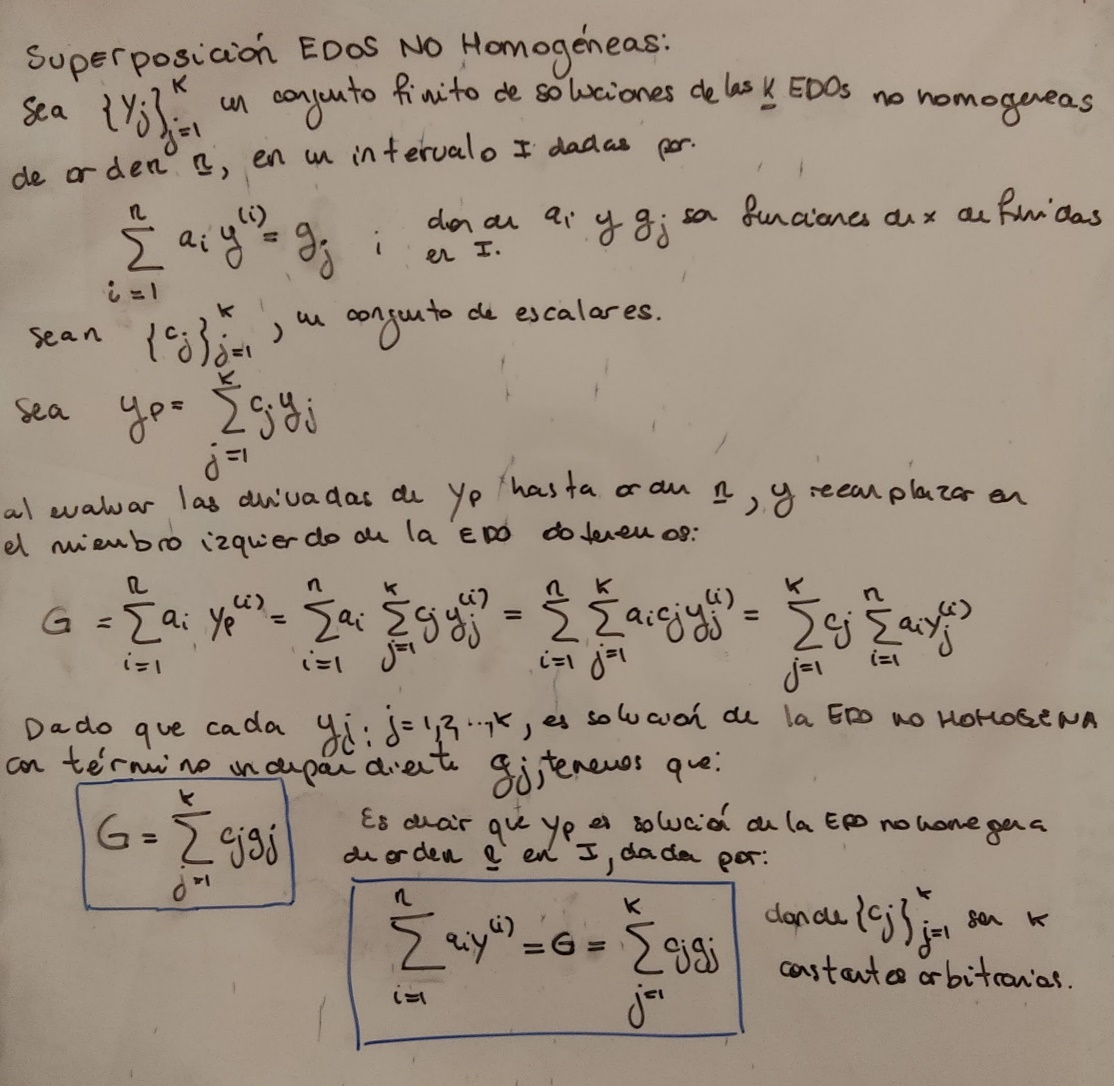 Superposición EDOS NO Homogéneas:
Sea {Yj}_{j=1}^{K} un conjunto finito de soluciones de las K EDOs no homogeneas
de orden n, en un intervalo I dadas por.
\sum_{i=1}^{n} a_i y^{(i)} = g_j ; donde a_i y g_j son funciones de x definidas
en I.
Sean {c_j}_{j=1}^{K}, un conjunto de escalares.
Sea y_p = \sum_{j=1}^{K} c_j y_j
al evaluar las derivadas de y_p hasta orden n, y reemplazar en
el miembro izquierdo de la EDO obtenemos:
G = \sum_{i=1}^{n} a_i y_p^{(i)} = \sum_{i=1}^{n} a_i \sum_{j=1}^{K} c_j y_j^{(i)} = \sum_{i=1}^{n} \sum_{j=1}^{K} a_i c_j y_j^{(i)} = \sum_{j=1}^{K} c_j \sum_{i=1}^{n} a_i y_j^{(i)}
Dado que cada y_j : j=1,2,..,K, es solución de la EDO NO HOMOGENA
con término independiente g_j, tenemos que:
G = \sum_{j=1}^{K} c_j g_j
Es decir que y_p es solución de la EDO no homogena
de orden n en I, dada por:
\sum_{i=1}^{n} a_i y^{(i)} = G = \sum_{j=1}^{K} c_j g_j
donde {c_j}_{j=1}^{K} son K
constantes arbitrarias.